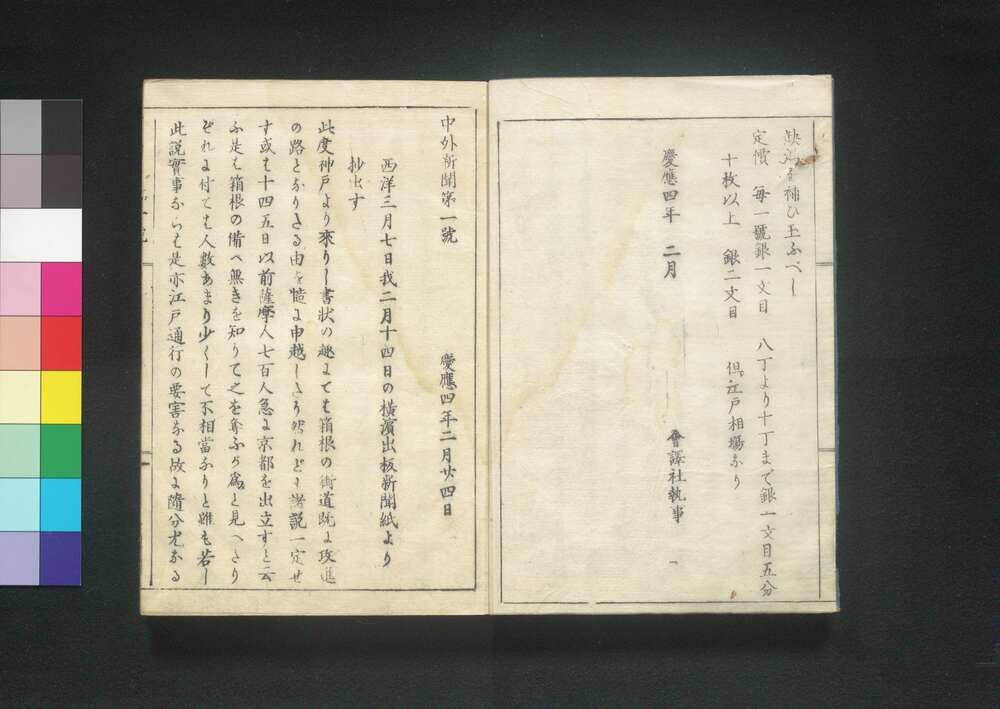 缺漏を補ひ玉ふべし
定價　毎一號銀一文目　八丁より十丁まで銀一文目五分
十枚以上　銀二文目　但江戸相場なり
慶應四年　二月
會譯社執事
中外新聞第一號　慶應四年二月廿四日
西洋三月七日我二月十四日の横濱出板新聞紙より
抄出す
此度神戸より來りし書状の趣にても箱根の街道既に攻進
の路となりたる由を慥に申越したり然れども諸説一定せ
す或は十四五日以前薩摩人七百人急に京都を出立すと云
ふ是は箱根の備へ無きを知りて之を奪ふ爲と見へたり
それに付ても人數あまり少くして不相當なりと雖も若し
此説實事ならは是亦江戸通行の要害なる故に隨分尤なる